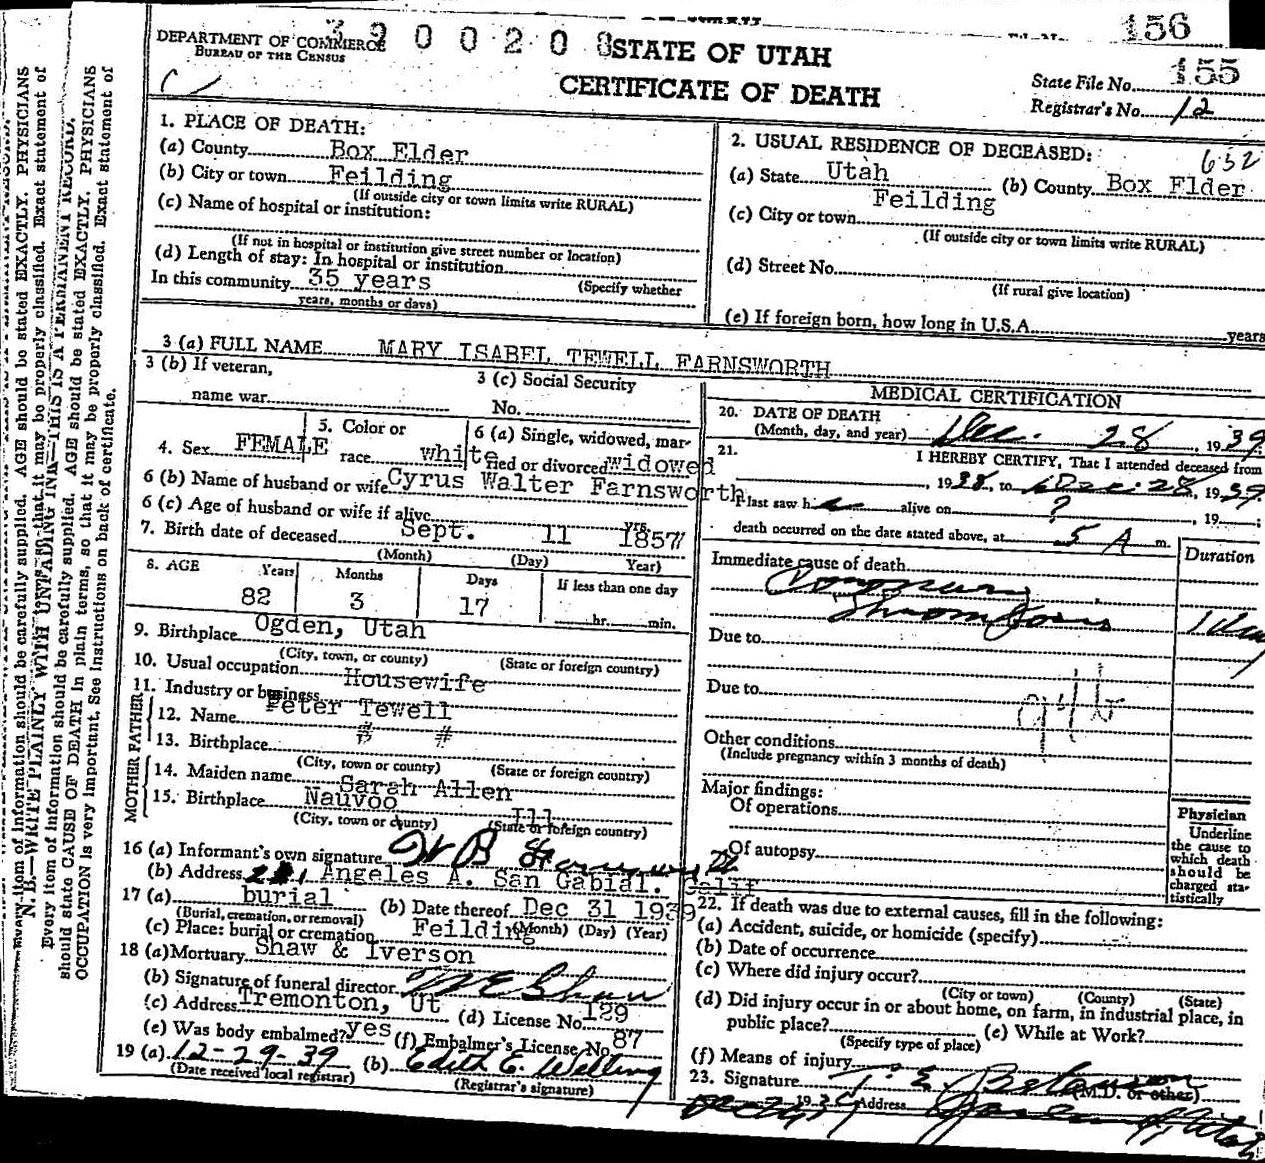 156
DEPARTMENT OF COMMERCE
BUREAU OF THE CENSUS
3 9 0 0 2 0 8
STATE OF UTAH
CERTIFICATE OF DEATH
State File No. 155
Registrar's No. 12
1. PLACE OF DEATH:
(a) County Box Elder
(b) City or town Feilding
(If outside city or town limits write RURAL)
(c) Name of hospital or institution:
(If not in hospital or institution give street number or location)
(d) Length of stay: In hospital or institution
In this community 35 years (Specify whether
years, months or days)
2. USUAL RESIDENCE OF DECEASED: 652
(a) State Utah (b) County Box Elder
(c) City or town Feilding
(If outside city or town limits write RURAL)
(d) Street No.
(If rural give location)
(e) If foreign born, how long in U.S.A. years
3 (a) FULL NAME MARY ISABEL TEWELL FARNSWORTH
3 (b) If veteran,
name war
3 (c) Social Security
No.
4. Sex FEMALE
5. Color or
race white
6 (a) Single, widowed, mar-
ried or divorced widowed
6 (b) Name of husband or wife Cyrus Walter Farnsworth
6 (c) Age of husband or wife if alive yrs.
7. Birth date of deceased Sept. 11 1857
(Month) (Day) Year)
8. AGE Years Months Days If less than one day
82 3 17 hr. min.
9. Birthplace Ogden, Utah
(City, town, or county) (State or foreign country)
10. Usual occupation Housewife
11. Industry or business
FATHER
12. Name Peter Tewell
13. Birthplace # #
(City, town or county) (State or foreign country)
MOTHER
14. Maiden name Sarah Allen
15. Birthplace Nauvoo Ill
(City, town or county) (State or foreign country)
16 (a) Informant's own signature W B Farnsworth
(b) Address Angeles A. San Gabial. Calif
17 (a) burial (b) Date thereof Dec 31 1939
(Burial, cremation, or removal) (Month) (Day) (Year)
(c) Place: burial or cremation Feilding
18 (a) Mortuary Shaw & Iverson
(b) Signature of funeral director M E Shaw
(c) Address Tremonton, Ut (d) License No. 129
(e) Was body embalmed? yes (f) Embalmer's License No. 87
19 (a) 12-29-39 (b) Edith E. Welling
(Date received local registrar) (Registrar's signature)
MEDICAL CERTIFICATION
20. DATE OF DEATH
(Month, day, and year) Dec. 28, 1939
21. I HEREBY CERTIFY, That I attended deceased from
, 1938, to Dec. 28, 1939.
I last saw h alive on ? , 19 ;
death occurred on the date stated above, at 5 A m.
Immediate cause of death Duration
Coronary
Thrombosis 1 day
Due to
Due to
94b
Other conditions
(Include pregnancy within 3 months of death)
Major findings:
Of operations
Of autopsy
Physician
Underline
the cause to
which death
should be
charged sta-
tistically
22. If death was due to external causes, fill in the following:
(a) Accident, suicide, or homicide (specify)
(b) Date of occurrence
(c) Where did injury occur?
(City or town) (County) (State)
(d) Did injury occur in or about home, on farm, in industrial place, in
public place? (e) While at Work?
(Specify type of place)
(f) Means of injury
23. Signature (M.D. or other)
Address
N. B.—WRITE PLAINLY WITH UNFADING INK—THIS IS A PERMANENT RECORD.
Every item of information should be carefully supplied. AGE should be stated EXACTLY. PHYSICIANS
should state CAUSE OF DEATH in plain terms, so that it may be properly classified. Exact statement of
OCCUPATION is very important. See instructions on back of certificate.